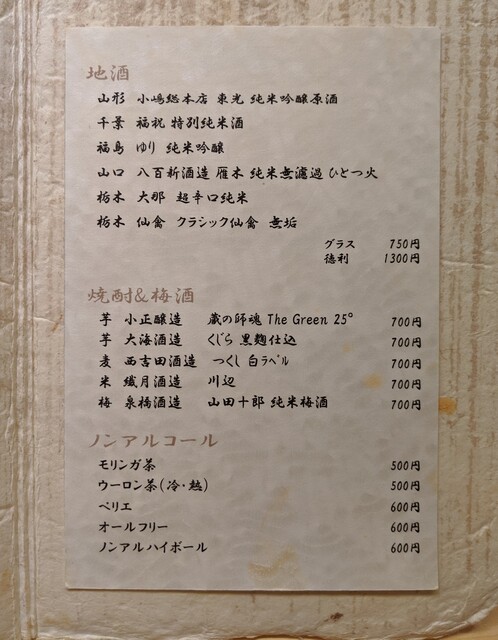 地酒
山形 小嶋総本店 東光 純米吟醸原酒
千葉 福祝 特別純米酒
福島 ゆり 純米吟醸
山口 八百新酒造 雁木 純米無濾過 ひとつ火
栃木 大那 超辛口純米
栃木 仙禽 クラシック仙禽 無垢
グラス 750円
徳利 1300円
焼酎&梅酒
芋 小正醸造 蔵の師魂 The Green 25° 700円
芋 大海酒造 くじら 黒麹仕込 700円
麦 西吉田酒造 つくし 白ラベル 700円
米 繊月酒造 川辺 700円
梅 泉橋酒造 山田十郎 純米梅酒 700円
ノンアルコール
モリンガ茶 500円
ウーロン茶(冷・熱) 500円
ペリエ 600円
オールフリー 600円
ノンアルハイボール 600円